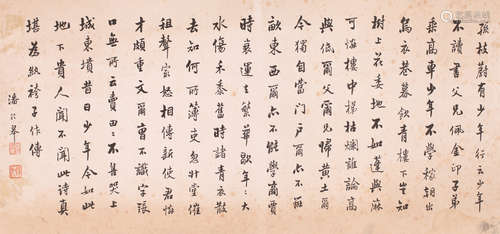 孫枝蔚有少年行云少年
不讀書父兄佩金印子弟
乘高車少年不學稼朝出
烏衣巷暮飲青樓下豈知
樹上花委地不如蓬與麻
可憐樓中梯枯爛誰論高
與低爾父爾兄歸黃土爾
今獨自當門戶爾亦不辨
畝東西爾亦不能學商賈
時衰運去繁華歇年々大
水傷禾黍舊時諸青衣散
去知何所簿吏忽升堂催
租聲最怒相傳新使君憐
才頗重文爾曾不識字張
口無所云賣田々不善哭上
城東墳昔日少年今如此
地下貴人聞不聞此詩真
堪為紈袴子作傳
潘齡皋